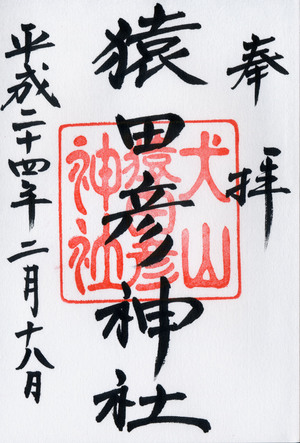 奉拝
猿田彦神社
犬山
猿田彦
神社
平成二十四年二月十八日